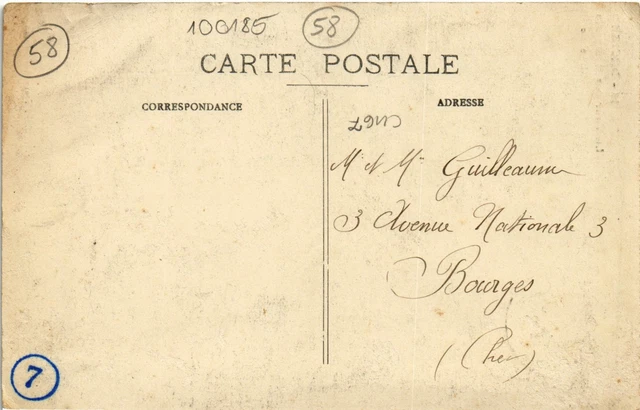 58
100185
58
CARTE POSTALE
CORRESPONDANCE
ADRESSE
Mr et Me Guilleaume
3 Avenue Nationale 3
Bourges
(Cher)
7